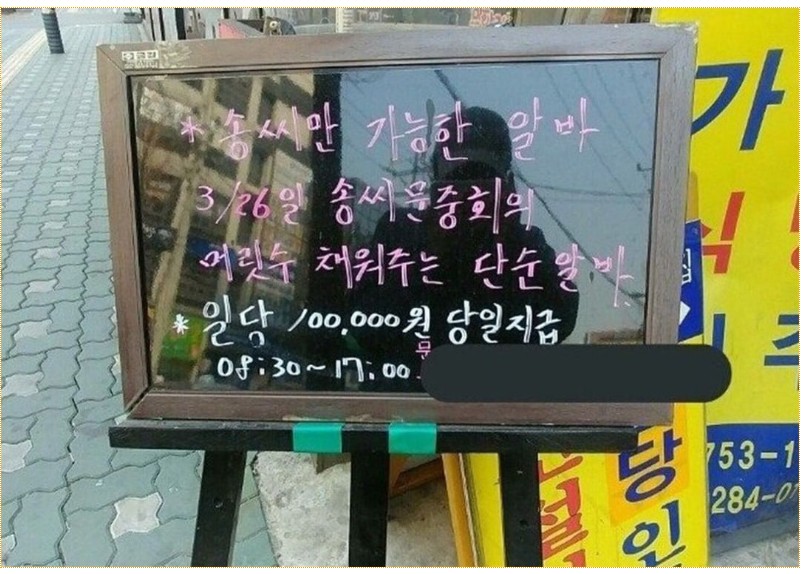 * 송씨만 가능한 알바
3/26일 송씨문중회의
머릿수 채워주는 단순알바.
* 일당 100,000원 당일지급
08:30~17:00
문
가
식
당
인
753-1
284-07